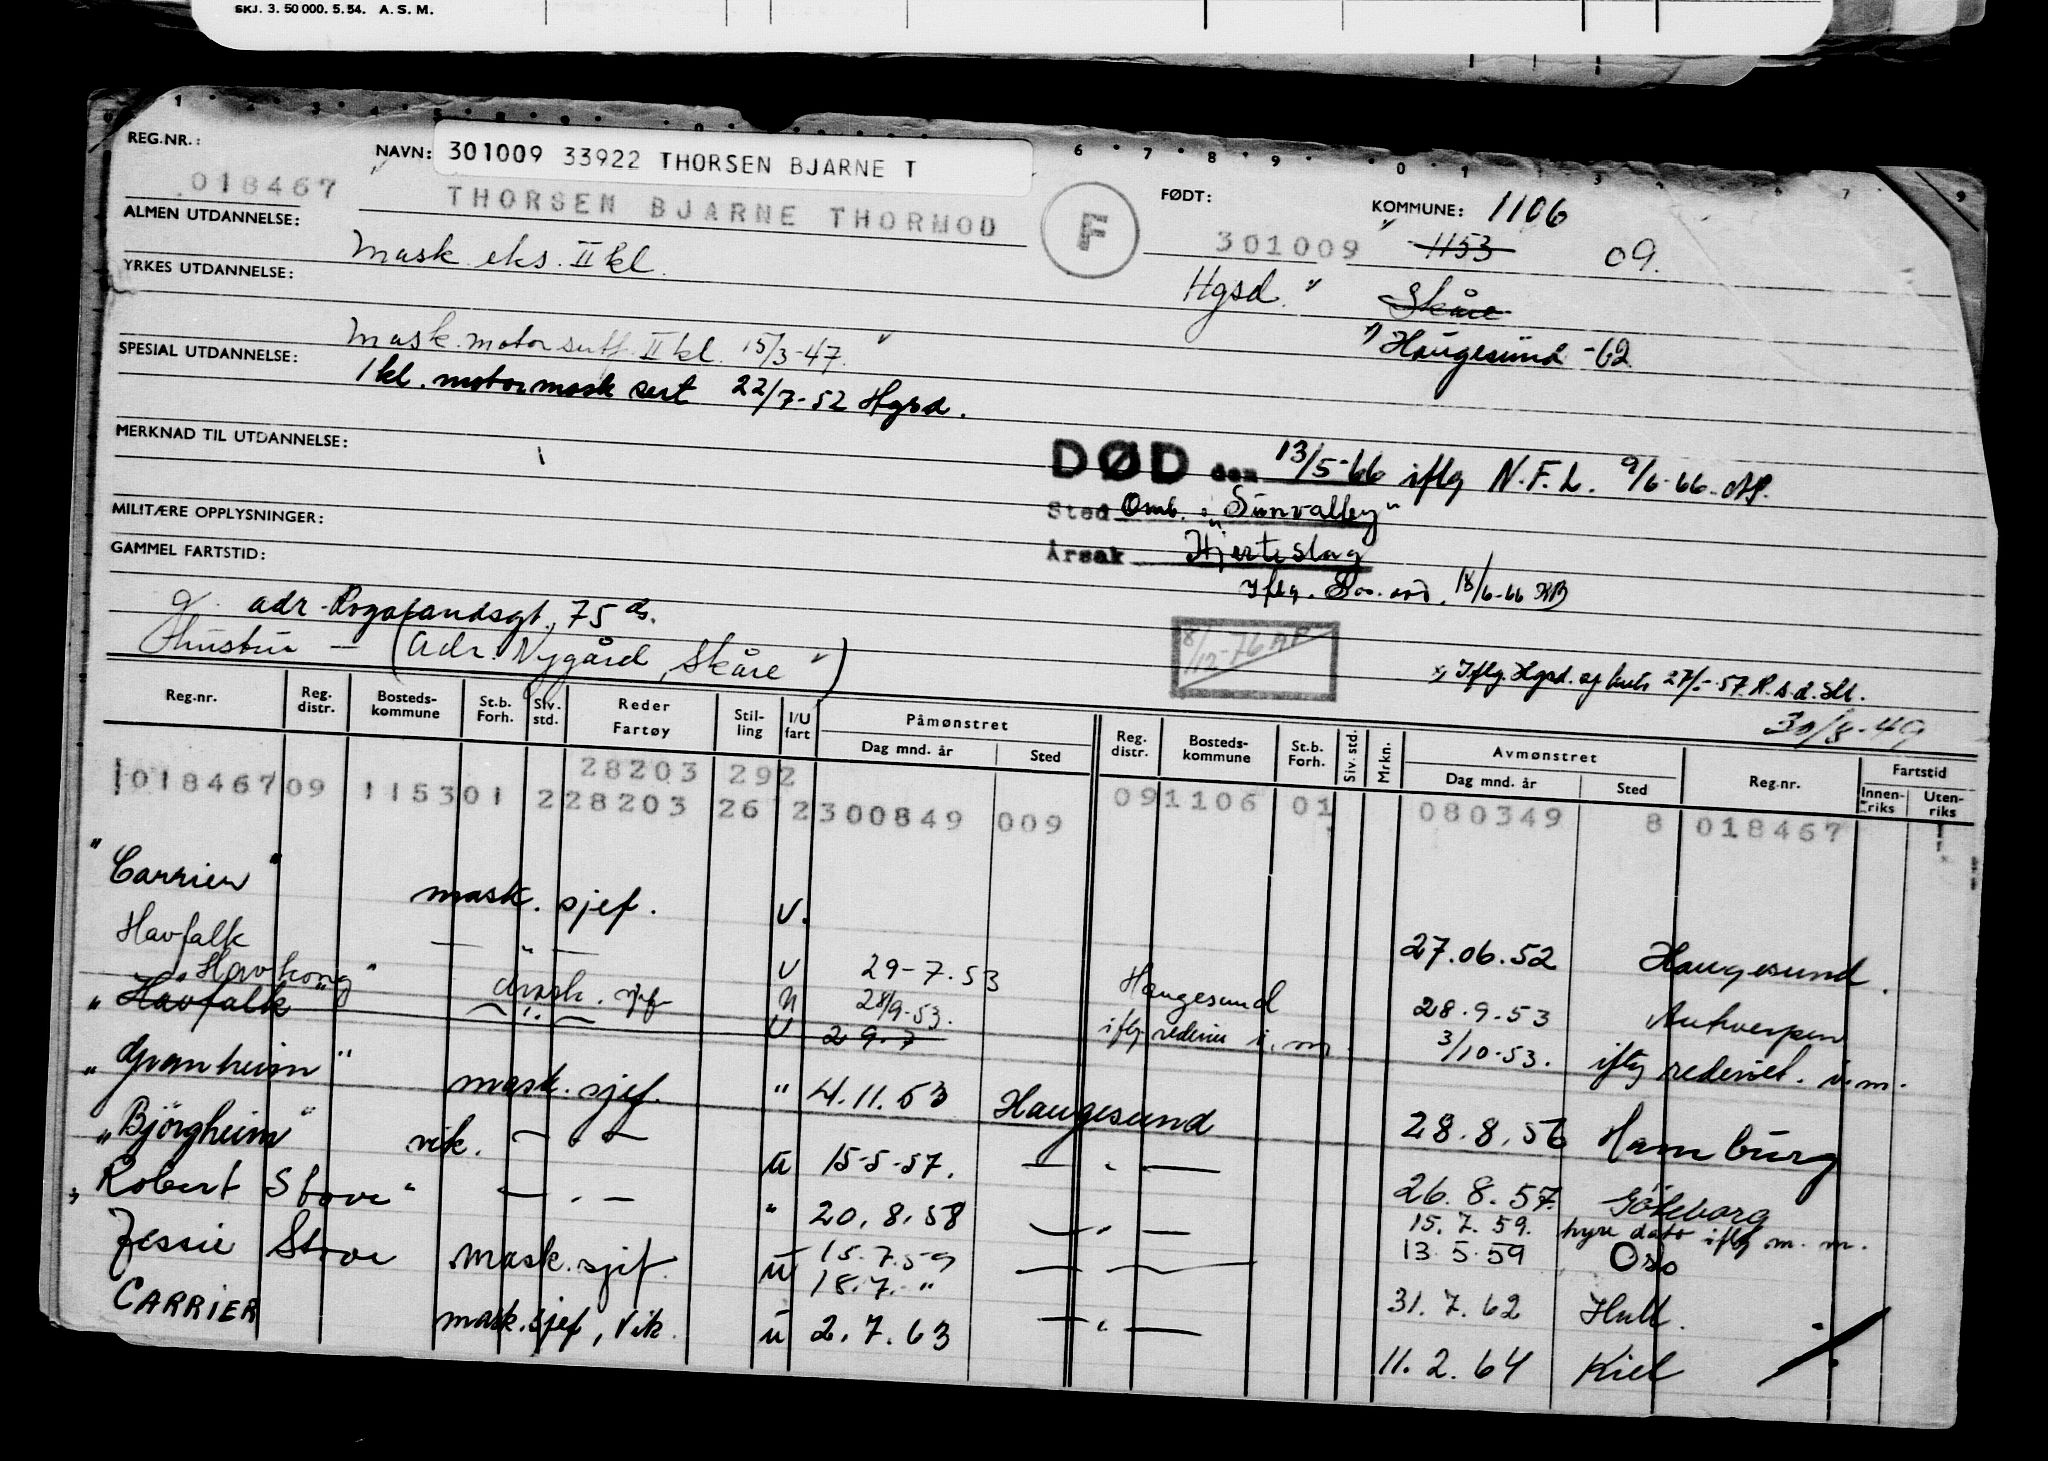 SKJ. 3. 50 000. 5. 54. A. S. M.
REG.NR.: 018467
NAVN: 301009 33922 THORSEN BJARNE T
THORSEN BJARNE THORMOD
F
FØDT: 301009
KOMMUNE: 1106
1153 09.
Hgsd. " Skåre
Haugesund -62
ALMEN UTDANNELSE: Mask. eks. II kl.
YRKES UTDANNELSE:
Mask. motor sert. II kl. 15/3-47.
SPESIAL UTDANNELSE: 1 kl. motormask sert 22/7-52 Hgsd.
MERKNAD TIL UTDANNELSE:
DØD den 13/5-66 iflg N.F.L. 9/6-66
Sted Omb. "Sunvalley"
Årsak Hjerteslag
MILITÆRE OPPLYSNINGER:
GAMMEL FARTSTID:
Iflg. 18/6-66
adr. Rogalandsgt. 75
Hustru — (adr. Nygård, Skåre")
8/12-76 AP
Iflg. Hgsd.
30/8-49
Reg.nr. Reg. distr. Bosteds-kommune St.b. Forh. Siv. std. Reder Fartøy Stil-ling I/U fart Påmønstret Dag mnd. år Sted Reg. distr. Bosteds-kommune St.b. Forh. Siv. std. Mrkn. Avmønstret Dag mnd. år Sted Reg.nr. Fartstid Innen-riks Uten-riks
28203 292
018467 09 1153 01 2 28203 26 2 300849 009 09 1106 01 080349 8 018467
"Carrier" mask. sjef. U. 27.06.52 Haugesund.
Havfalk — " — U 29-7.53 Haugesund 28.9.53 Antwerpen
"Havkong" mask. sjef U 28/9-53. iflg rederiet i.m. 3/10-53. iflg rederiet. i.m.
"Havfalk — " — U 29.7
"Granheim" mask. sjef. " 4.11.53 Haugesund 28.8.56 Hamburg
"Björgheim" vik. — " — U 15-5-57. — " — 26.8.57. Göteborg
"Robert Stove" — " — " 20.8.58 — " — 15.7.59. hyre dato iflg m. m.
13.5.59 Oslo
Jessie Stove mask. sjef. U 15.7.59 — " — 31.7.62 Hull.
18.7. "
CARRIER mask. sjef, vik. U 2.7.63 — " — 11.2.64 Kiel